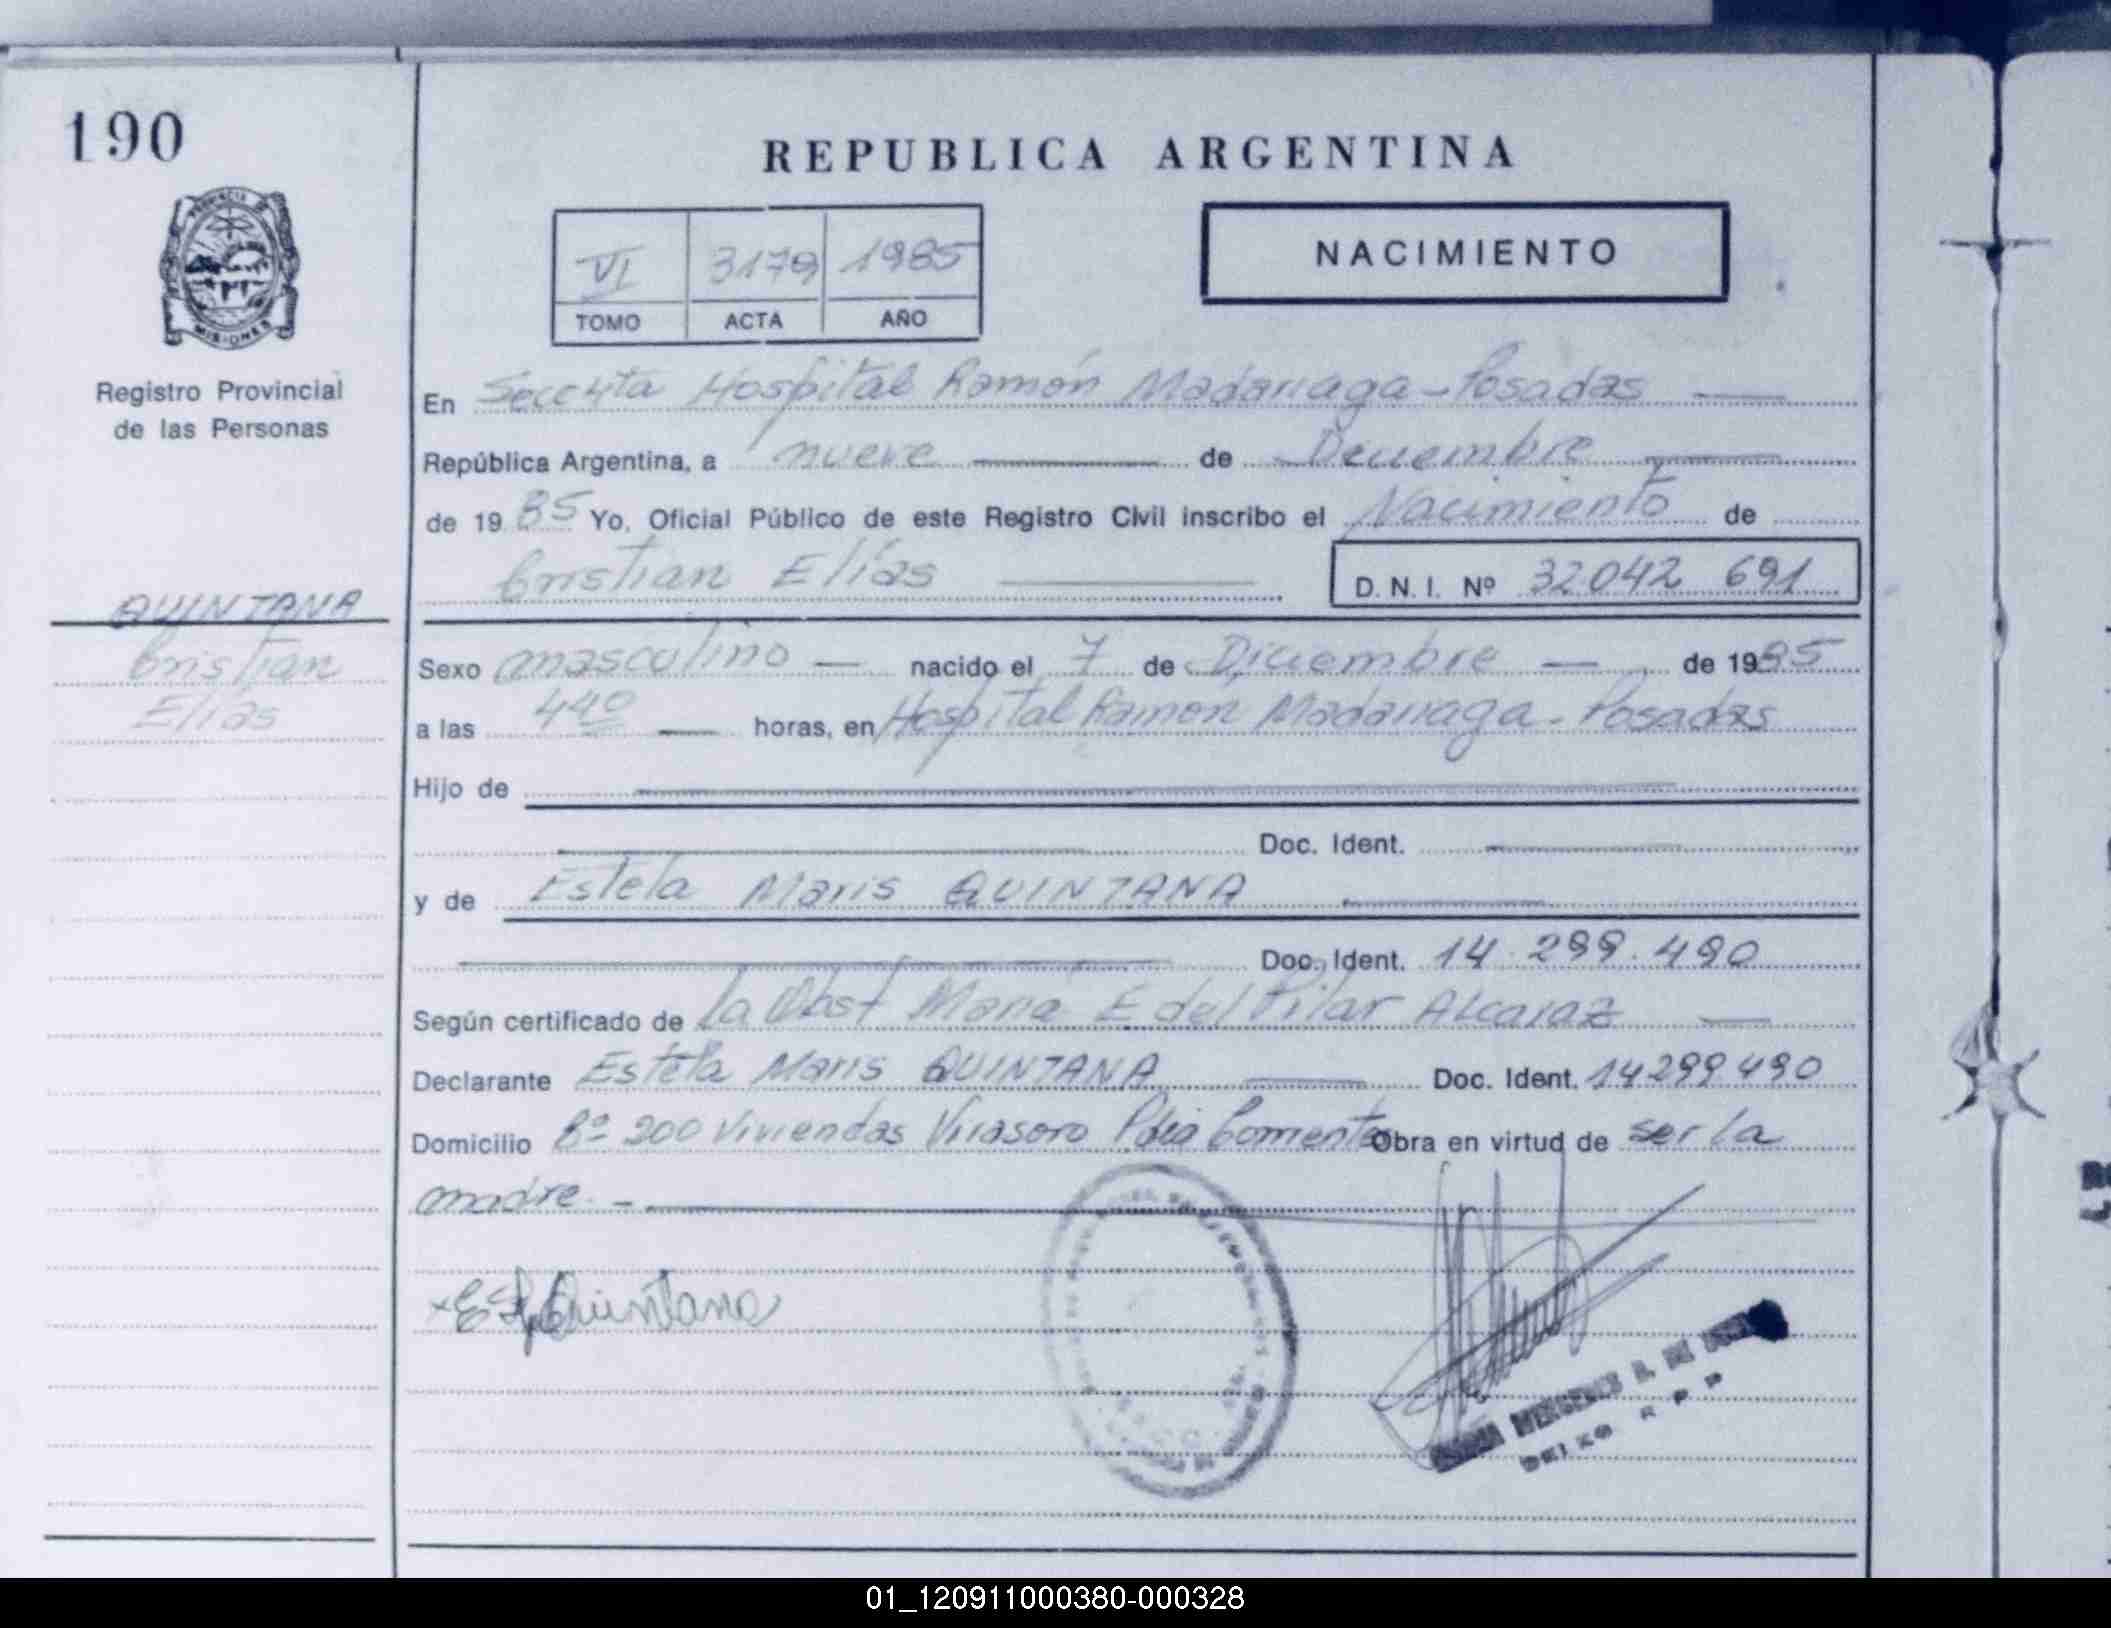 190
REPUBLICA ARGENTINA
NACIMIENTO
VI 3179 1985
TOMO ACTA AÑO
PROVINCIA DE
MISIONES
Registro Provincial
de las Personas
En Secc 4ta Hospital Ramón Madariaga - Posadas
República Argentina, a nueve de Diciembre
de 19 85 Yo, Oficial Público de este Registro Civil inscribo el Nacimiento de
Cristian Elías D. N. I. Nº 32.042 691
QUINTANA
Cristian
Elías
Sexo masculino nacido el 7 de Diciembre de 1985
a las 4 40 horas, en Hospital Ramón Madariaga - Posadas
Hijo de
Doc. Ident.
y de Estela Maris QUINTANA
Doc. Ident. 14.299.490
Según certificado de la Obst María E del Pilar Alcaraz
Declarante Estela Maris QUINTANA Doc. Ident. 14299490
Domicilio Bº 200 Viviendas Virasoro Pcia Corrientes Obra en virtud de ser la
madre. -
Quintana
R P P
01_120911000380-000328